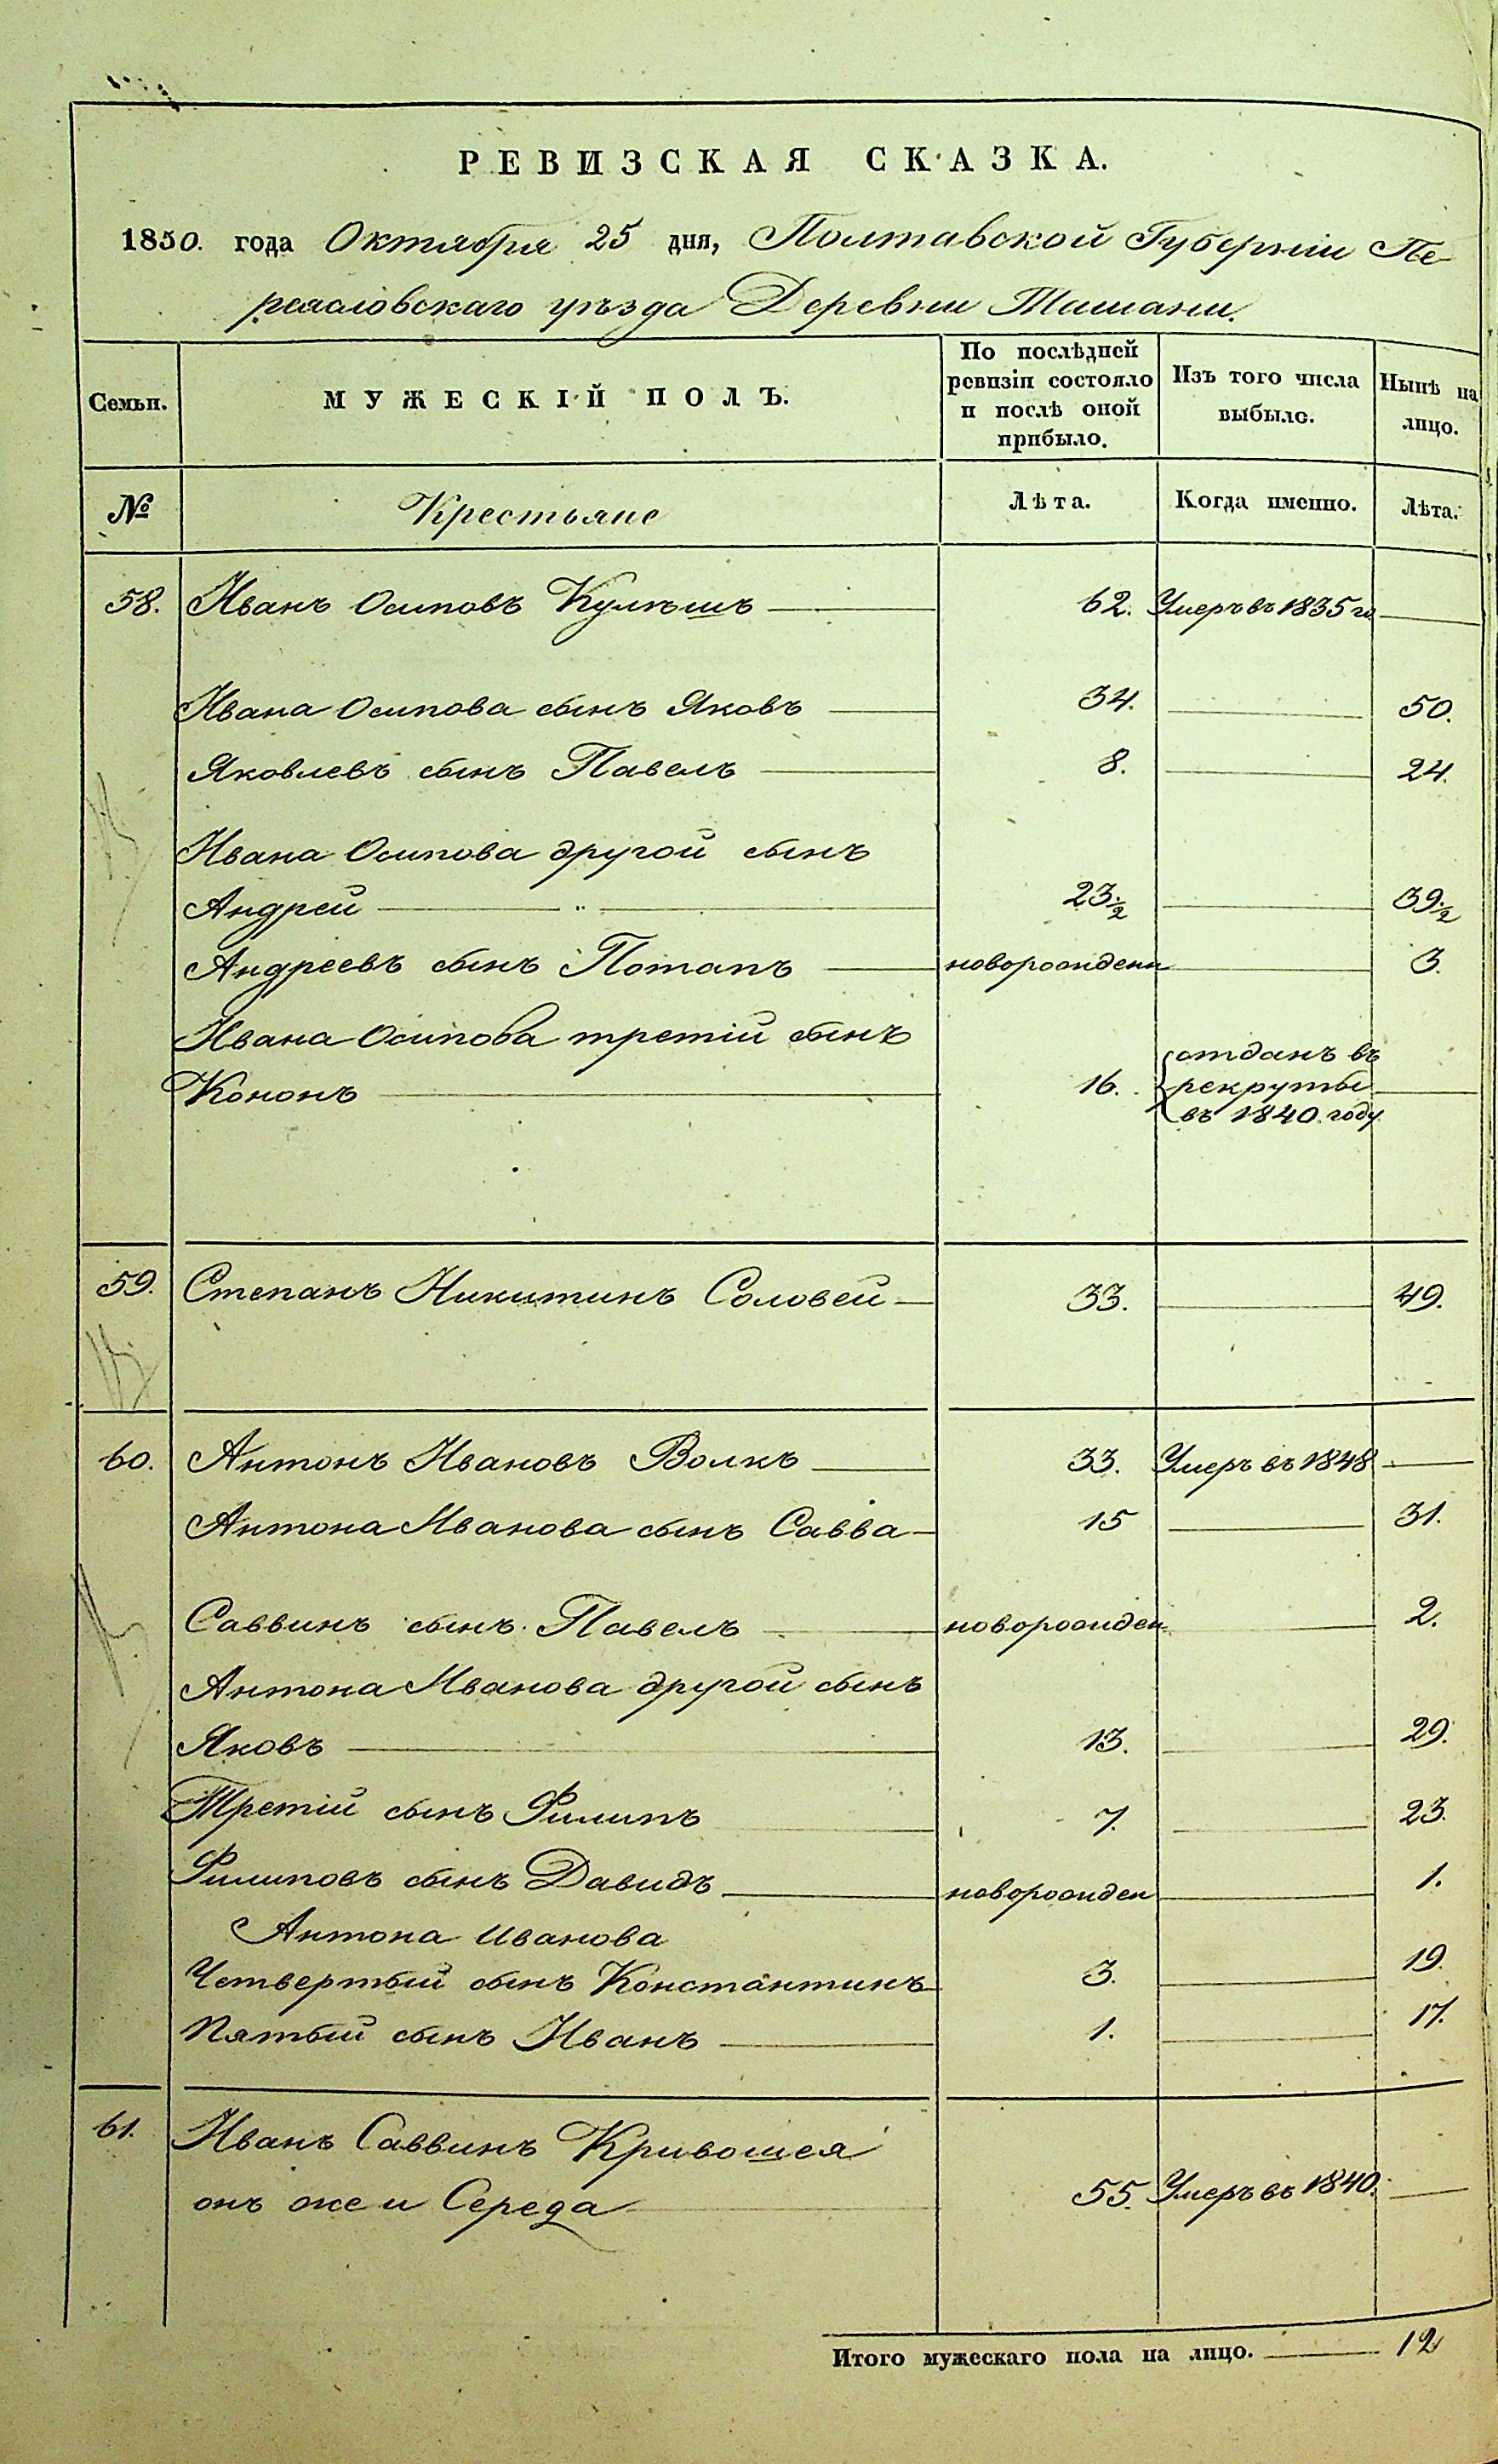 РЕВИЗСКАЯ СКАЗКА.
1850. года Октября 25 дня, Полтавской Губерніи Пе-
реяаловскаго уѣзда Деревни Ташани.
Семьи.
МУЖЕСКІЙ ПОЛЪ.
По послѣдней ревизіи состояло и послѣ оной прибыло.
Изъ того числа выбыло.
Нынѣ на лицо.
№ Крестьяне Лѣта. Когда именно. Лѣта.
58. Иванъ Осиповъ Кулѣшъ 62. Умеръ въ 1835 го
Ивана Осипова сынъ Яковъ 34. 50.
Яковлевъ сынъ Павелъ 8. 24.
Ивана Осипова другой сынъ
Андрей 23.½ 39.½
Андреевъ сынъ Потапъ новорожденн 3.
Ивана Осипова третій сынъ
Кононъ 16. отданъ въ рекруты въ 1840 году
59. Степанъ Никитинъ Соловей 33. 49.
60. Антонъ Ивановъ Волкъ 33. Умеръ въ 1848
Антона Иванова сынъ Савва 15 31.
Саввинъ сынъ Павелъ новорожден. 2.
Антона Иванова другой сынъ
Яковъ 13. 29.
Третій сынъ Филипъ 7. 23.
Филиповъ сынъ Давидъ новорожден 1.
Антона Иванова
Четвертый сынъ Константинъ 3. 19.
Пятый сынъ Иванъ 1. 17.
61. Иванъ Саввинъ Кривошея
онъ же и Середа 55. Умеръ въ 1840.
Итого мужескаго пола на лицо. 12